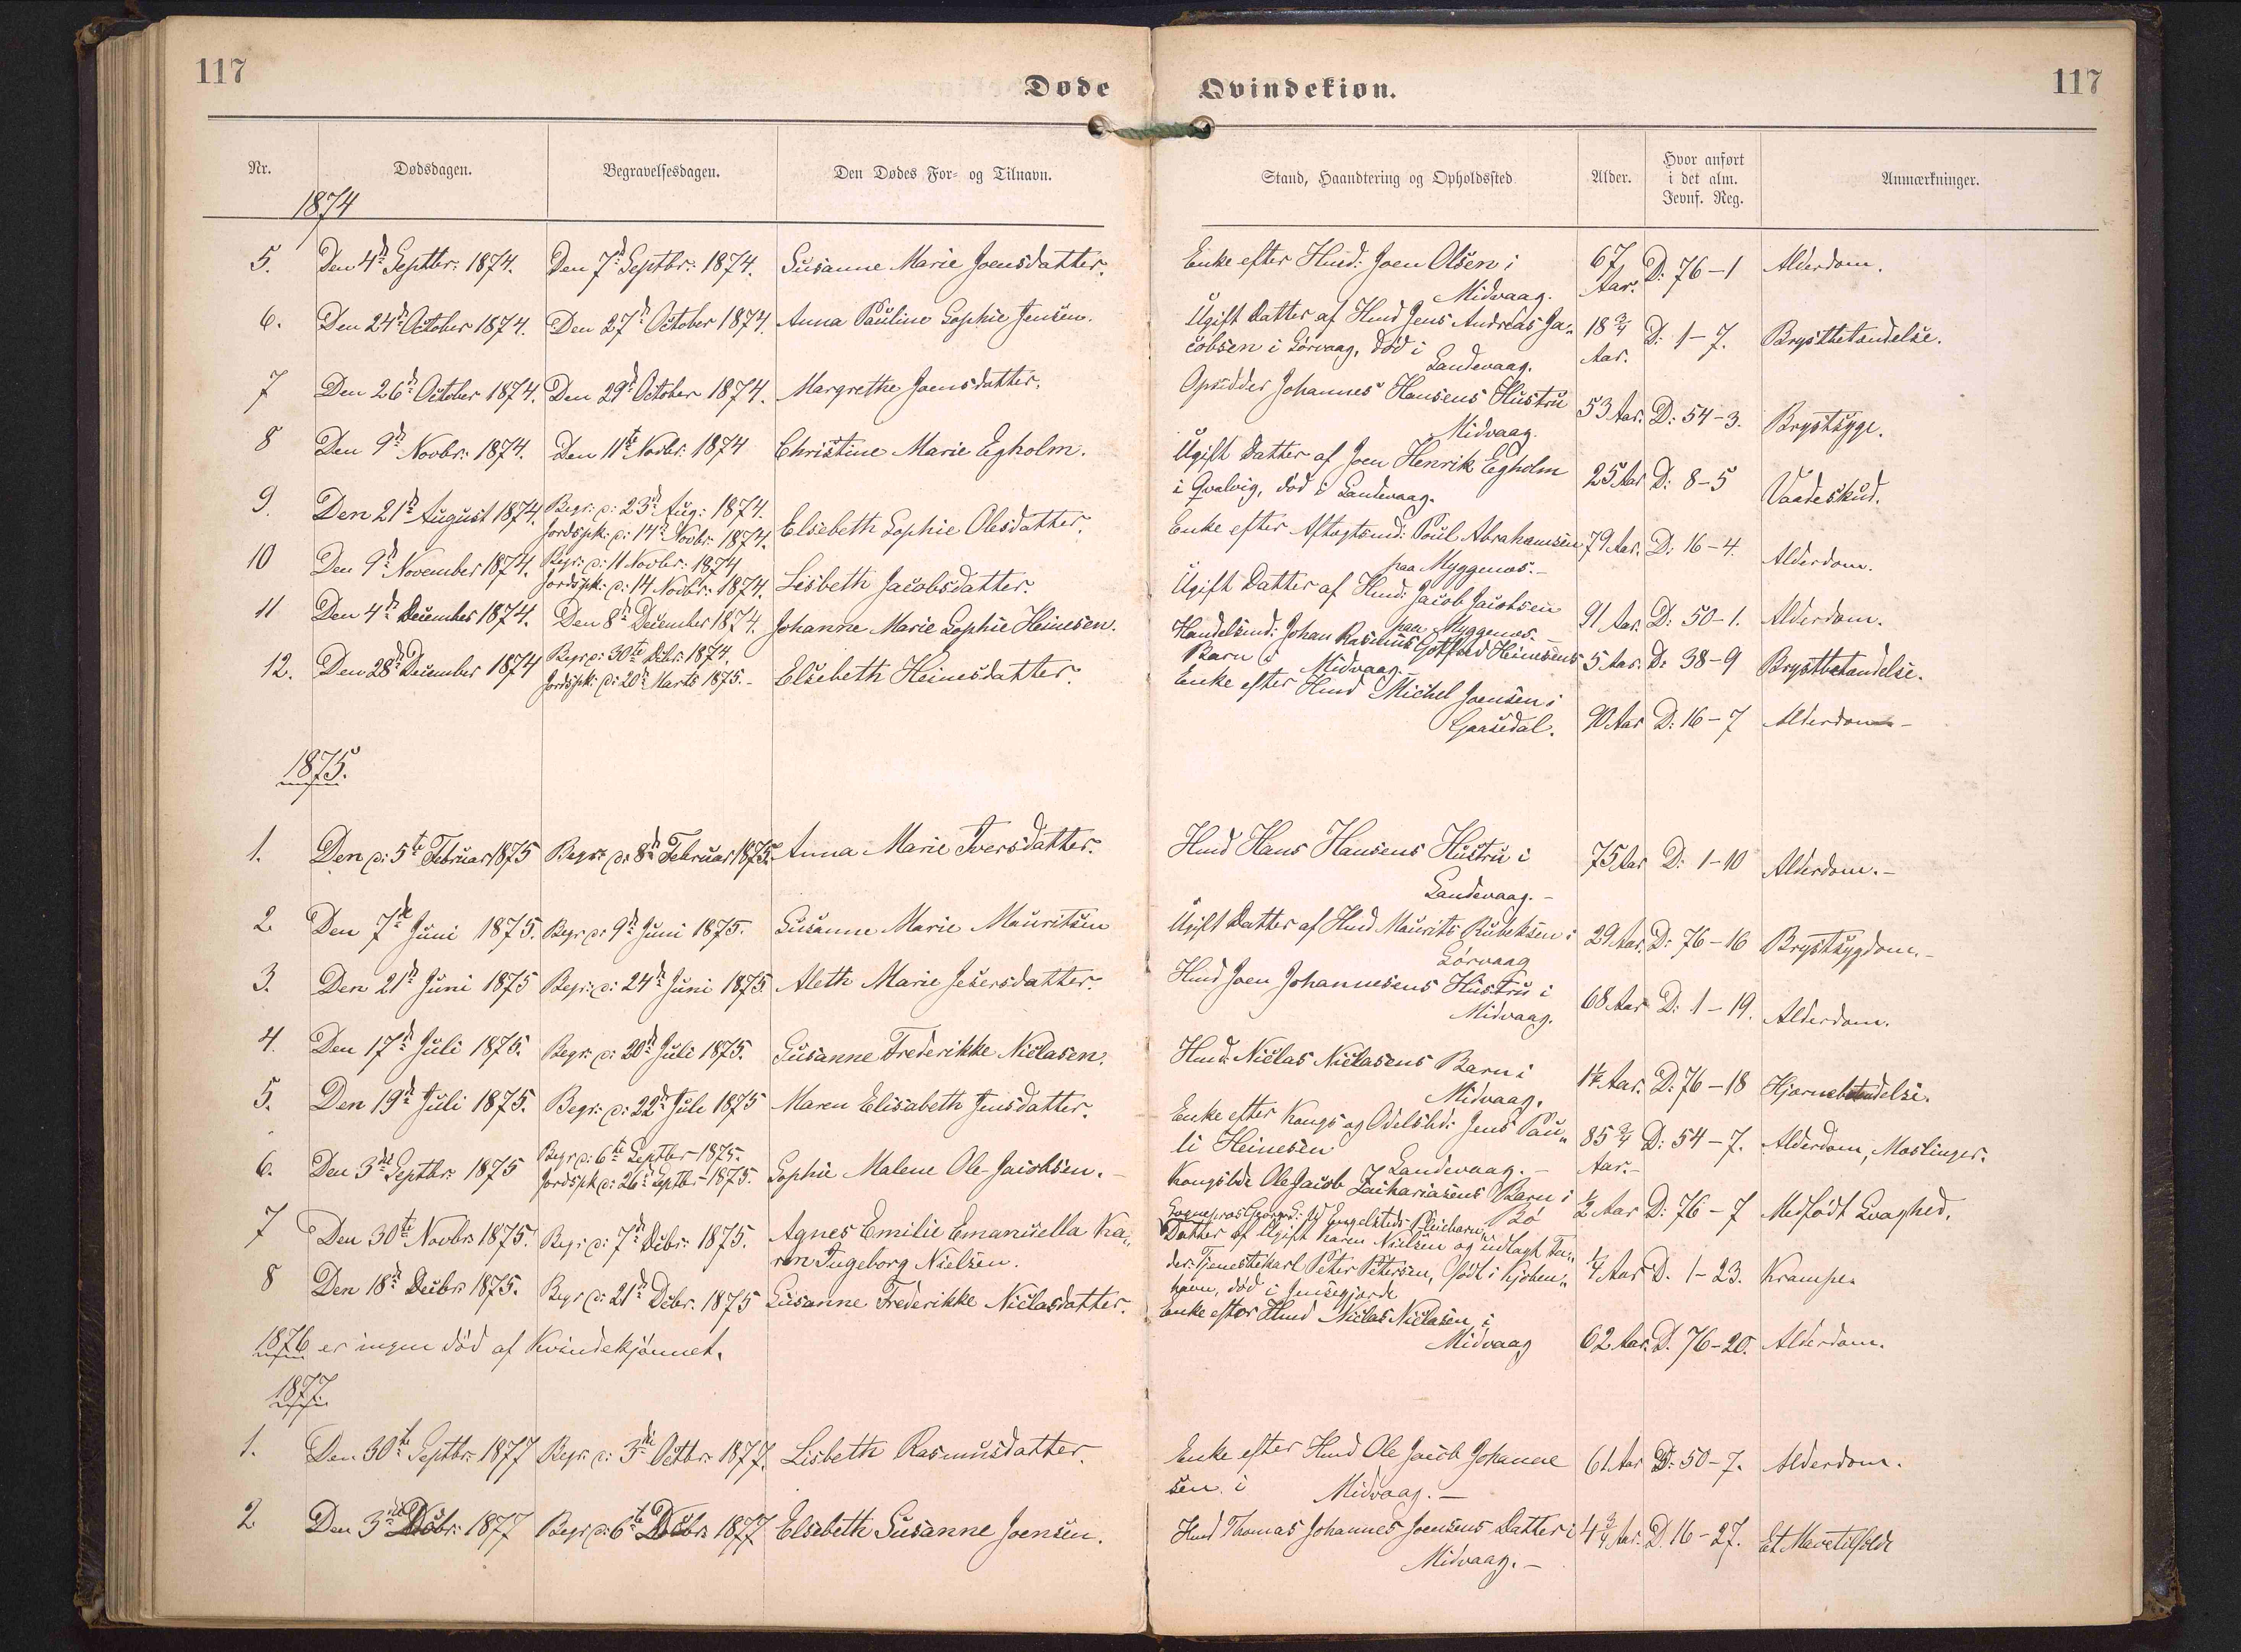 117
Døde
Qvindekiøn.
117
Nr.
Dødsdagen.
Begravelsesdagen.
Den Dødes For- og Tilnavn.
Stand, Haandtering og Opholdssted
Alder.
Hvor anført
i det alm.
Jevnf. Reg.
Anmærkninger.
1874
5. Den 4d Septbr: 1874. Den 7d Septbr: 1874. Susanne Marie Joensdatter.
Enke efter Husd: Joen Olsen i
Midvaag.
67
Aar.
D: 76-1
Alderdom.
6. Den 24d October 1874. Den 27d October 1874. Anna Pauline Sophie Jensen.
Ugift Datter af Husd Jens Andreas Ja„
cobsen i Sörvaag, död i
Sandevaag.
18 3/4
Aar.
D: 1-7.
Brystbetændelse.
7 Den 26d October 1874. Den 29d October 1874. Margrethe Joensdatter.
Opsidder Johannes Hansens Hustru
Midvaag.
53 Aar. D: 54-3. Brystsyge.
8 Den 9d Novbr: 1874. Den 11te Novbr: 1874 Christine Marie Egholm.
Ugift Datter af Joen Henrik Egholm
i Qvalvig, död i Sandevaag.
25 Aar D: 8-5 Vaadeskud.
9. Den 21d August 1874. Begr: d: 23d Aug: 1874.
Jordspk: d: 14d Novbr: 1874. Elsebeth Sophie Olesdatter.
Enke efter Aftagtsmd: Poul Abrahamsen
paa Myggenæs.-
79 Aar. D: 16-4. Alderdom.
10 Den 9d November 1874. Begr: d: 11 Novbr: 1874
Jordspk: d: 14 Novbr: 1874. Lisbeth Jacobsdatter.
Ugift Datter af Husd: Jacob Jacobsen
paa Myggenæs.-
91 Aar. D: 50-1. Alderdom.
11 Den 4d December 1874. Den 8d December 1874. Johanne Marie Sophie Heinesen.
Handelsmd: Johan Rasmus Gotfred Heinesens
Barn i Midvaag.
5 Aar. D: 38-9 Brystbetændelse.
12. Den 28d December 1874 Begr: d: 30te Debr: 1874.
Jordspk: d: 20d Marts 1875.- Elsebeth Heinesdatter.
Enke efter Husd Michel Joensen i
Gaasedal.
90 Aar D: 16-7 Alderdom-
1875.
1. Den d: 5te Februar 1875 Begr: d: 8d Februar 1875. Anna Marie Iversdatter.
Husd Hans Hansens Hustru i
Sandevaag.-
75 Aar D: 1-10 Alderdom.-
2. Den 7de Juni 1875. Begr d: 9d Juni 1875. Susanne Marie Mauritsen
Ugift Datter af Husd Maurits Rubeksen i
Sörvaag
29 Aar. D: 76-16 Brystsygdom.-
3. Den 21d Juni 1875 Begr: d: 24d Juni 1875. Aleth Marie Jesersdatter.
Husd Joen Johannesens Hustru i
Midvaag.
68 Aar D: 1-19. Alderdom.
4. Den 17d Juli 1875. Begr: d: 20d Juli 1875. Susanne Frederikke Niclasen.
Husd: Niclas Niclasens Barn i
Midvaag.
Aar. D: 76-18 Hjernebetændelse.
5. Den 19d Juli 1875. Begr: d: 22d Juli 1875 Maren Elisabeth Jensdatter.
Enke efter Kongs og Odelsbd: Jens Pau„
li Heinesen
Sandevaag.-
85 3/4
Aar.-
D: 54-7. Alderdom, Mæslinger.
6. Den 3de Septbr: 1875 Begr d: 6te Septbr 1875.
Jordspk d: 26d Septbr 1875. Sophie Malene Ole-Jacobsen.-
Kongsbde Ole Jacob Zachariasens Barn i
Bö
1/2 Aar D: 76-7 Medfödt Svaghed.
7 Den 30te Novbr: 1875. Begr: d: 7d Debr: 1875. Agnes Emilie Emanuella Ka„
ren Ingeborg Nielsen.
Engelsteds Pleiebarn
Datter af Ugift Karen Nielsen og udlagt Fa„
der: Tjenestekarl Peter Petersen, födt i Kjöben„
havn, död i Jensegjerde
1/4 Aar D. 1-23. Krampe.
8 Den 18d Decbr: 1875. Begr d: 21d Debr. 1875 Susanne Frederikke Niclasdatter.
Enke efter Husd Niclas Niclasen i
Midvaag
62 Aar. D. 76-20. Alderdom.
1876 er ingen död af Kvindekjönnet.
1877.
1. Den 30te Septbr: 1877 Begr: d: 3de Octbr: 1877. Lisbeth Rasmusdatter.
Enke efter Husd Ole Jacob Johanne
sen i Midvaag.-
61 Aar D: 50-7. Alderdom.
2 Den 3de Debr: 1877 Begr: d: 6te Debr: 1877 Elsebeth Susanne Joensen.
Husd Thomas Johannes Joensens Datter i
Midvaag.-
4 3/4 Aar. D. 16-27. Et Mavetilfælde